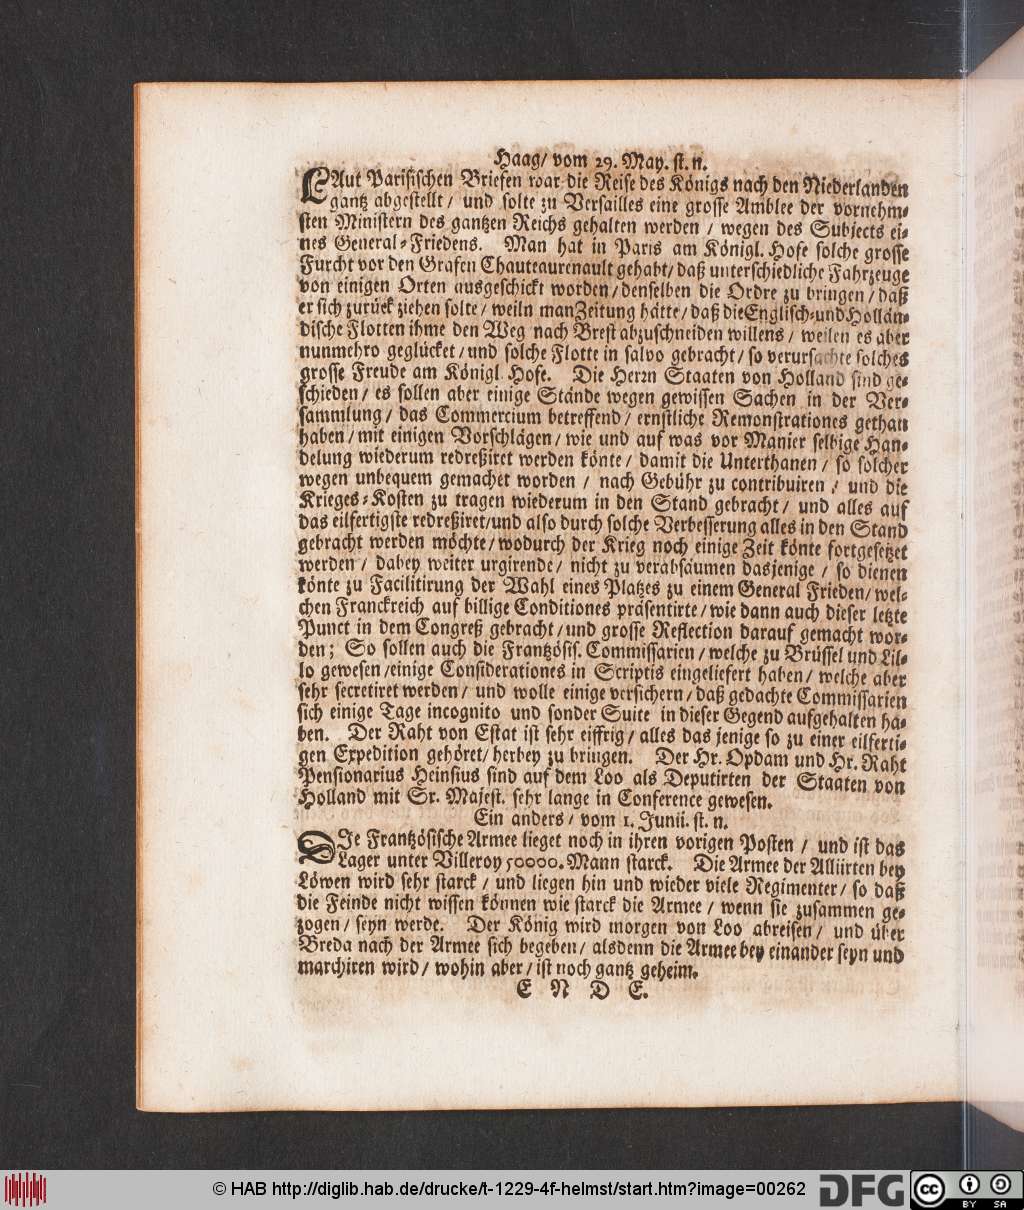 Haag/ vom 29. May. st. n.
LAut Parisischen Briefen war die Reise des Königs nach den Niederlanden
gantz abgestellt/ und solte zu Versailles eine grosse Amblee der vornehm-
sten Ministern des gantzen Reichs gehalten werden / wegen des Subjects ei-
nes General-Friedens. Man hat in Paris am Königl. Hofe solche grosse
Furcht vor den Grafen Chauteaurenault gehabt/ daß unterschiedliche Fahrzeuge
von einigen Orten ausgeschickt worden/ denselben die Ordre zu bringen/ daß
er sich zurück ziehen solte/ weiln man Zeitung hätte/ daß die Englisch-und Hollän-
dische Flotten ihme den Weg nach Brest abzuschneiden willens / weilen es aber
nunmehro geglücket/ und solche Flotte in salvo gebracht/ so verursachte solches
grosse Freude am Königl Hofe. Die Herrn Staaten von Holland sind ge-
schieden/ es sollen aber einige Stände wegen gewissen Sachen in der Ver-
sammlung/ das Commercium betreffend/ ernstliche Remonstrationes gethan
haben/ mit einigen Vorschlägen/ wie und auf was vor Manier selbige Han-
delung wiederum redreßiret werden könte/ damit die Unterthanen/ so solcher
wegen unbequem gemachet worden / nach Gebühr zu contribuiren / und die
Krieges-Kosten zu tragen wiederum in den Stand gebracht/ und alles auf
das eilfertigste redreßiret/ und also durch solche Verbesserung alles in den Stand
gebracht werden möchte/ wodurch der Krieg noch einige Zeit könte fortgesetzet
werden/ dabey weiter urgirende/ nicht zu verabsäumen dasjenige/ so dienen
könte zu Facilitirung der Wahl eines Platzes zu einem General Frieden/ wel-
chen Franckreich auf billige Conditiones präsentirte/ wie dann auch dieser letzte
Punct in dem Congreß gebracht/ und grosse Reflection darauf gemacht wor-
den; So sollen auch die Frantzösis. Commissarien/ welche zu Brüssel und Lil-
lo gewesen/ einige Considerationes in Scriptis eingeliefert haben/ welche aber
sehr secretiret werden/ und wolle einige versichern/ daß gedachte Commissarien
sich einige Tage incognito und sonder Suite in dieser Gegend aufgehalten ha-
ben. Der Raht von Estat ist sehr eiffrig/ alles das jenige so zu einer eilferti-
gen Expedition gehöret/ herbey zu bringen. Der Hr. Opdam und Hr. Raht
Pensionarius Heinsius sind auf dem Loo als Deputirten der Staaten von
Holland mit Sr. Majest. sehr lange in Conference gewesen.
Ein anders/ vom 1. Junii. st. n.
DIe Frantzösische Armee lieget noch in ihren vorigen Posten / und ist das
Lager unter Villeroy 50000. Mann starck. Die Armee der Alliirten bey
Löwen wird sehr starck / und liegen hin und wieder viele Regimenter/ so daß
die Feinde nicht wissen können wie starck die Armee / wenn sie zusammen ge-
zogen/ seyn werde. Der König wird morgen von Loo abreisen/ und über
Breda nach der Armee sich begeben/ alsdenn die Armee bey einander seyn und
marchiren wird/ wohin aber/ ist noch gantz geheim.
E N D E.
© HAB http://diglib.hab.de/drucke/t-1229-4f-helmst/start.htm?image=00262
DFG
cc BY SA